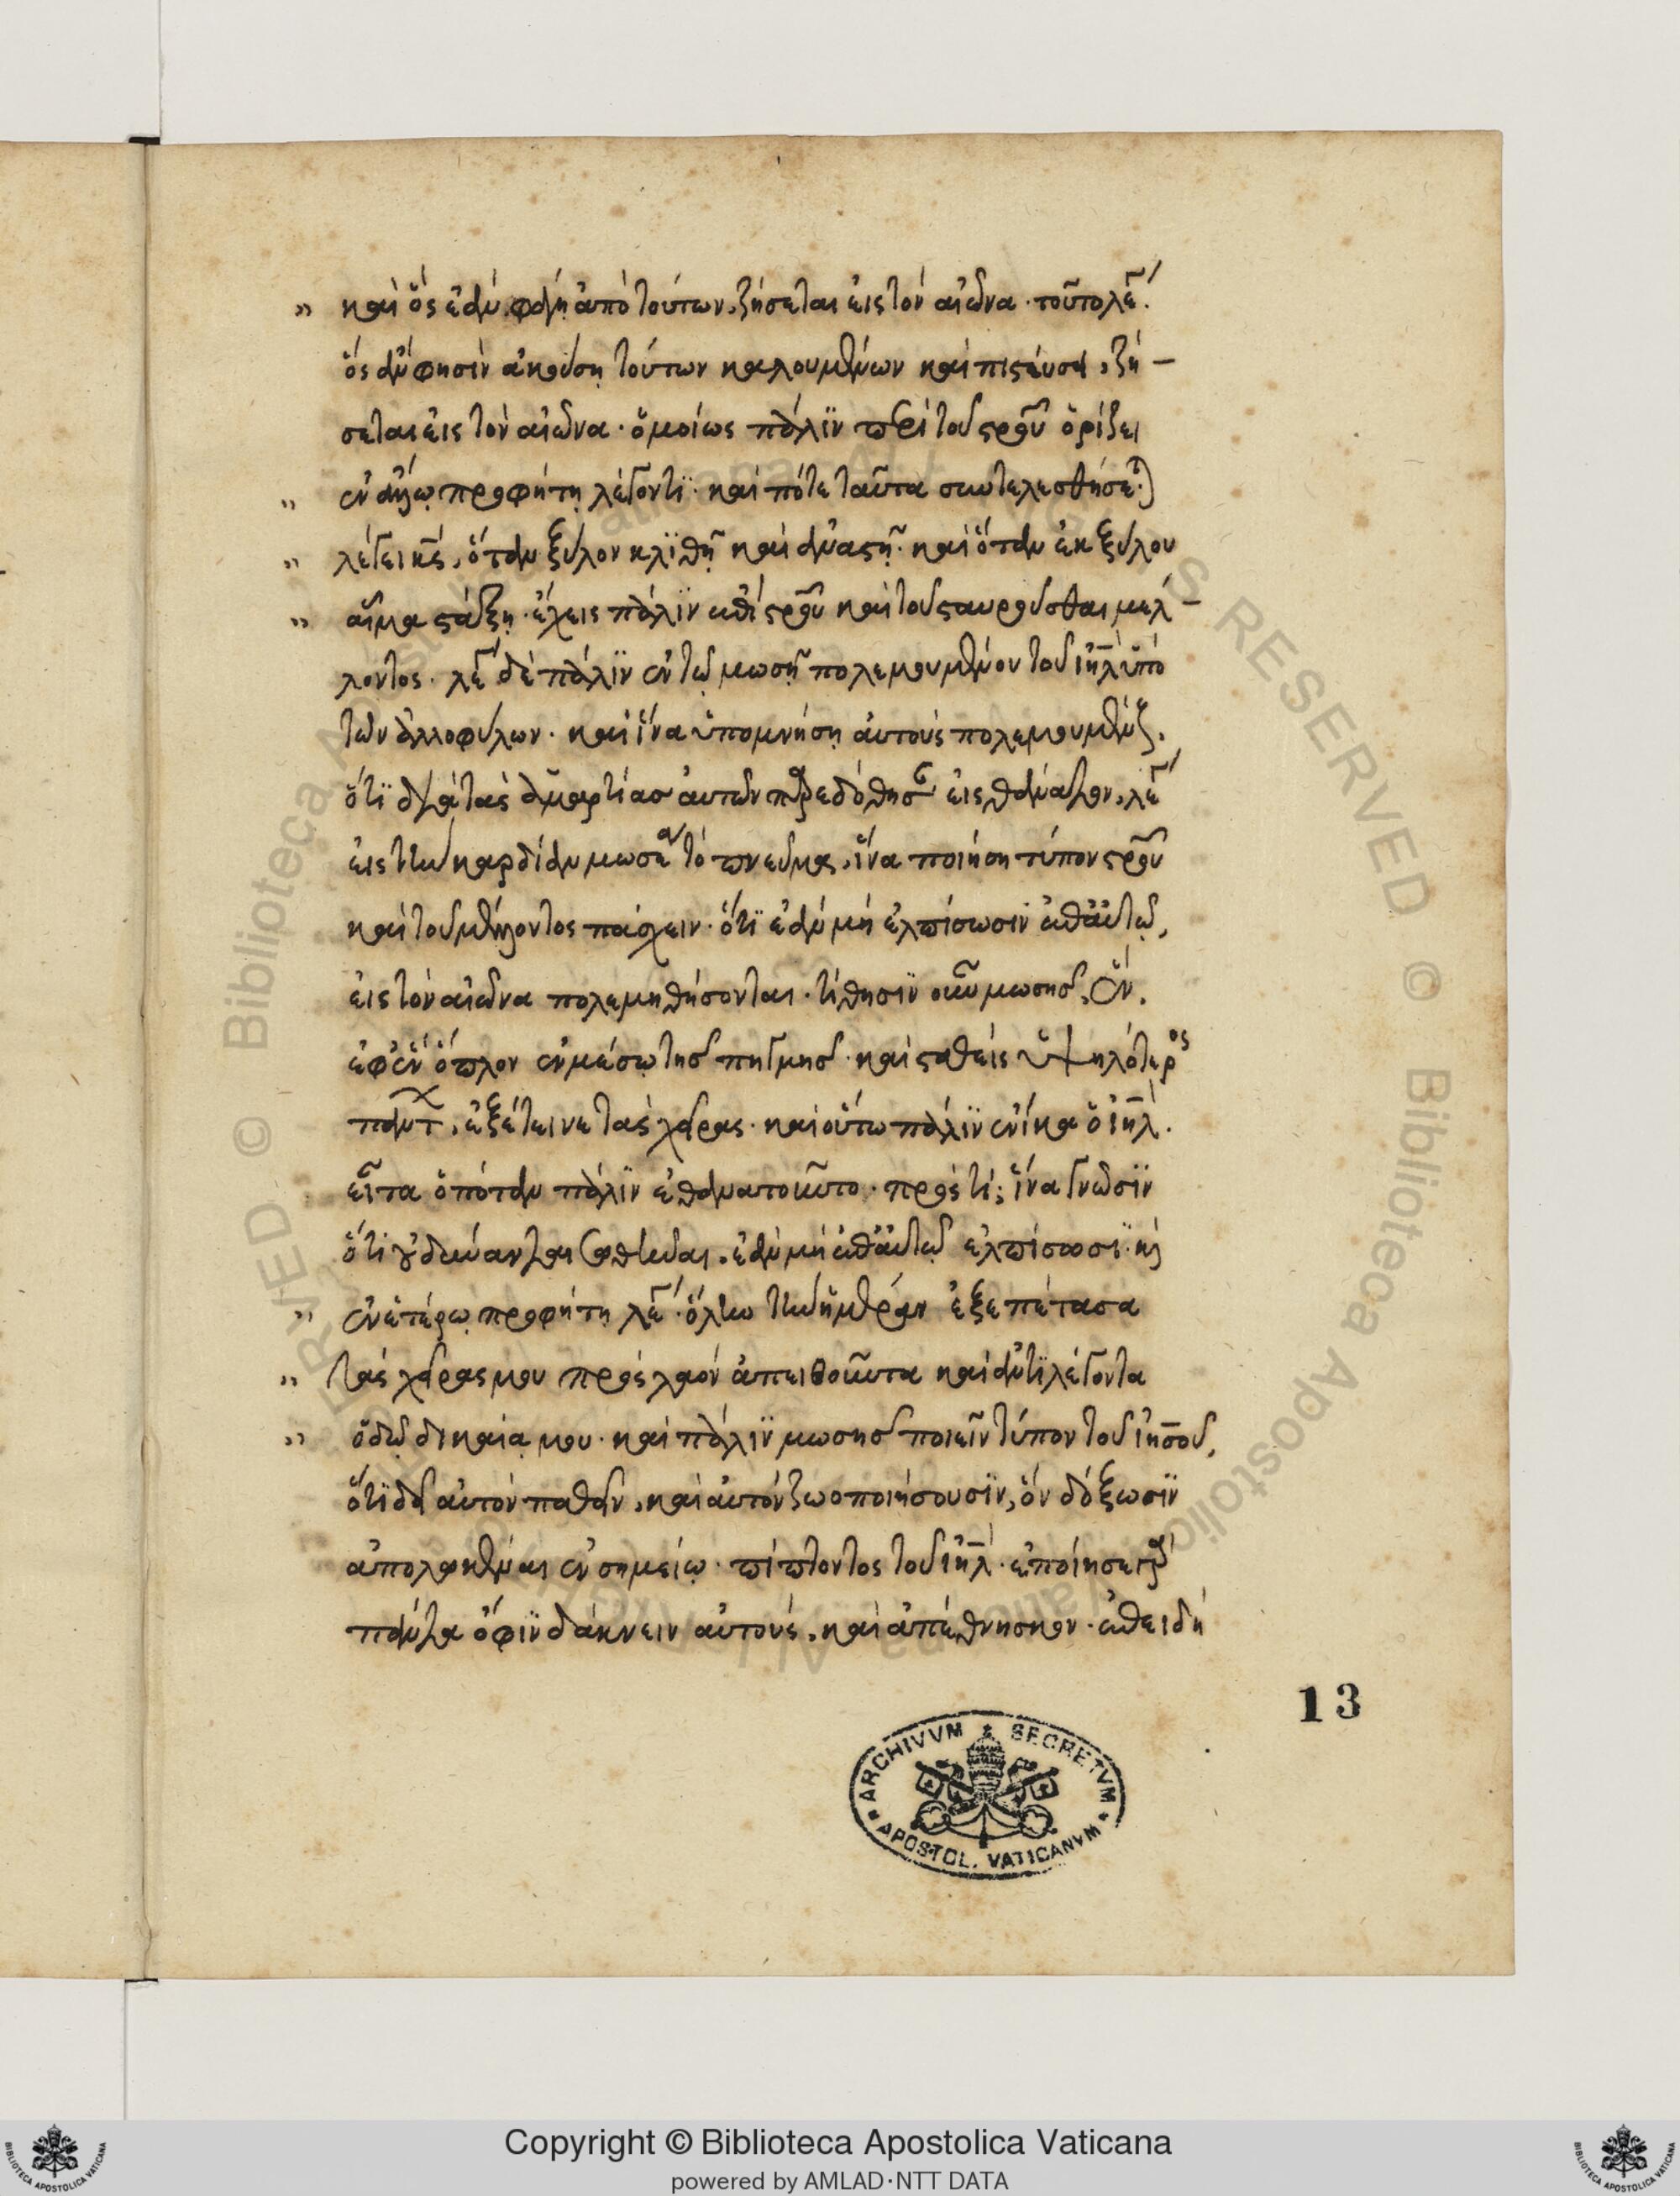 " καὶ ὃς ἐὰν φάγῃ ἀπὸ τούτων, ζήσεται εἰς τὸν αἰῶνα · τοῦτο λέγ.
ὃς ἂν φησὶν ἀκούσῃ τούτων καλουμένων καὶ πιστεύσει, ζή-
σεται εἰς τὸν αἰῶνα · ὁμοίως πάλϊν περὶ τοῦ σταυροῦ ὁρίζει
" ἐν ἄλλῳ προφήτῃ λέγοντϊ · καὶ πότε ταῦτα συντελεσθήσεται
" λέγει κς, ὅταν ξύλον κλϊθῇ καὶ ἀναστῇ · καὶ ὅταν ἐκ ξύλου
" αἷμα στάξῃ · ἔχεις πάλϊν ἐπὶ σταυροῦ καὶ τοῦ σταυροῦσθαι μέλ-
λοντος · λέγ δὲ πάλϊν ἐν τῷ μωσῇ πολεμουμένου τοῦ ιηλ ὑπὸ
τῶν ἀλλοφύλων · καὶ ἵνα ὑπομνήσῃ αὐτοὺς πολεμουμένους,
ὅτϊ διὰ τὰς ἁμαρτίας αὐτῶν παρεδόθησαν εἰς θάνατον, λέγ
εἰς τὴν καρδίαν μωσέα τὸ πνεῦμα, ἵνα ποιήσῃ τύπον σταυροῦ
καὶ τοῦ μέλλοντος πάσχειν · ὅτϊ ἐὰν μὴ ἐλπίσωσϊν ἐπ' αὐτῷ,
εἰς τὸν αἰῶνα πολεμηθήσονται · τίθησϊν οὖν μωσῆς, ἓν
ἐφ' ἓν ὅπλον ἐν μέσῳ τῆς πηγμῆς · καὶ σταθεὶς ὑψηλότερος
πάντων, ἐξέτεινε τὰς χεῖρας · καὶ οὕτω πάλϊν ἐνίκα ὁ ιηλ.
εἶτα ὁπόταν πάλϊν ἐθανατοῦντο · πρὸς τί; ἵνα γνῶσϊν
ὅτϊ οὐ δύνανται σωθῆναι, ἐὰν μὴ ἐπ' αὐτῷ ἐλπίσωσϊ · κὶ
" ἐν ἑτέρῳ προφήτῃ λέγ · ὅλην τὴν ἡμέραν ἐξεπέτασα
" τὰς χεῖρας μου πρὸς λαὸν ἀπειθοῦντα καὶ ἀντϊλέγοντα
" ὁδῷ δικαίᾳ μου · καὶ πάλϊν μωσῆς ποιεῖ τύπον τοῦ ιησοῦ,
ὅτϊ δεῖ αὐτὸν παθεῖν, καὶ αὐτὸν ζωοποιήσουσϊν, ὃν δόξωσϊν
ἀπολωλέναι ἐν σημείῳ · πίπτοντος τοῦ ιηλ · ἐποίησε γὰρ
πάντα ὄφϊν δάκνειν αὐτούς, καὶ ἀπέθνησκον · ἐπειδὴ
13
ARCHIVVM SECRETVM
APOSTOL. VATICANVM
© Biblioteca Apostolica Vaticana ALL RIGHTS RESERVED
Copyright © Biblioteca Apostolica Vaticana
powered by AMLAD·NTT DATA
BIBLIOTECA APOSTOLICA VATICANA
BIBLIOTECA APOSTOLICA VATICANA